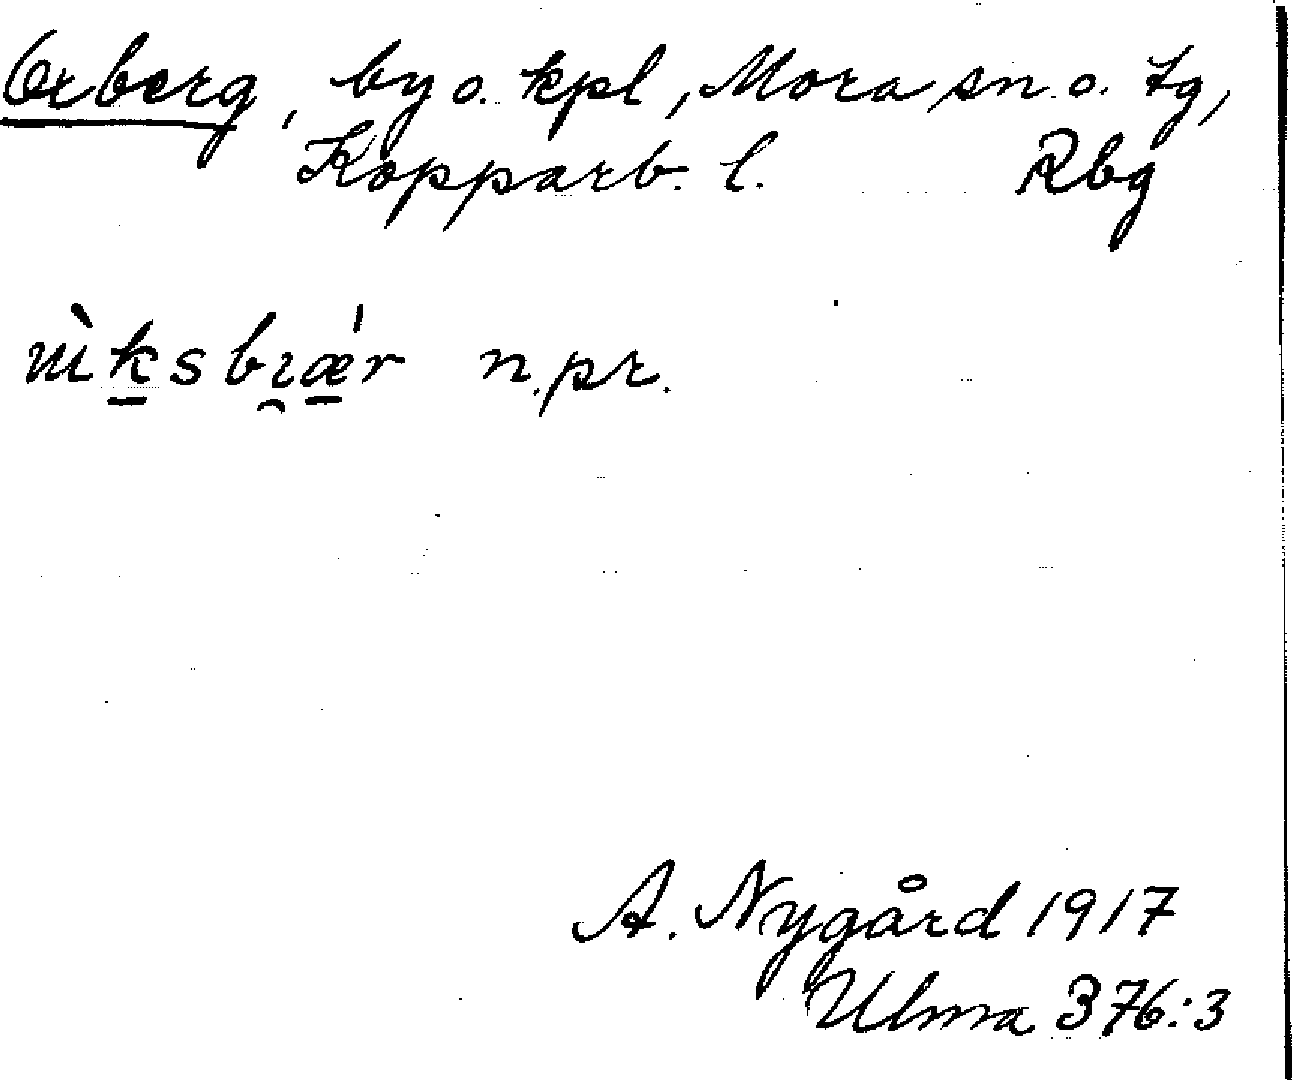 Oxberg, by o. kpl, Mora sn. o. tg,
Kopparb. l. Rbg
n.pr.
A. Nygård 1917
Ulma 376:3